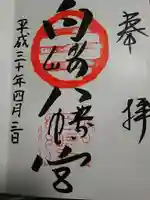 奉拝
八幡宮
平成三十年四月三日